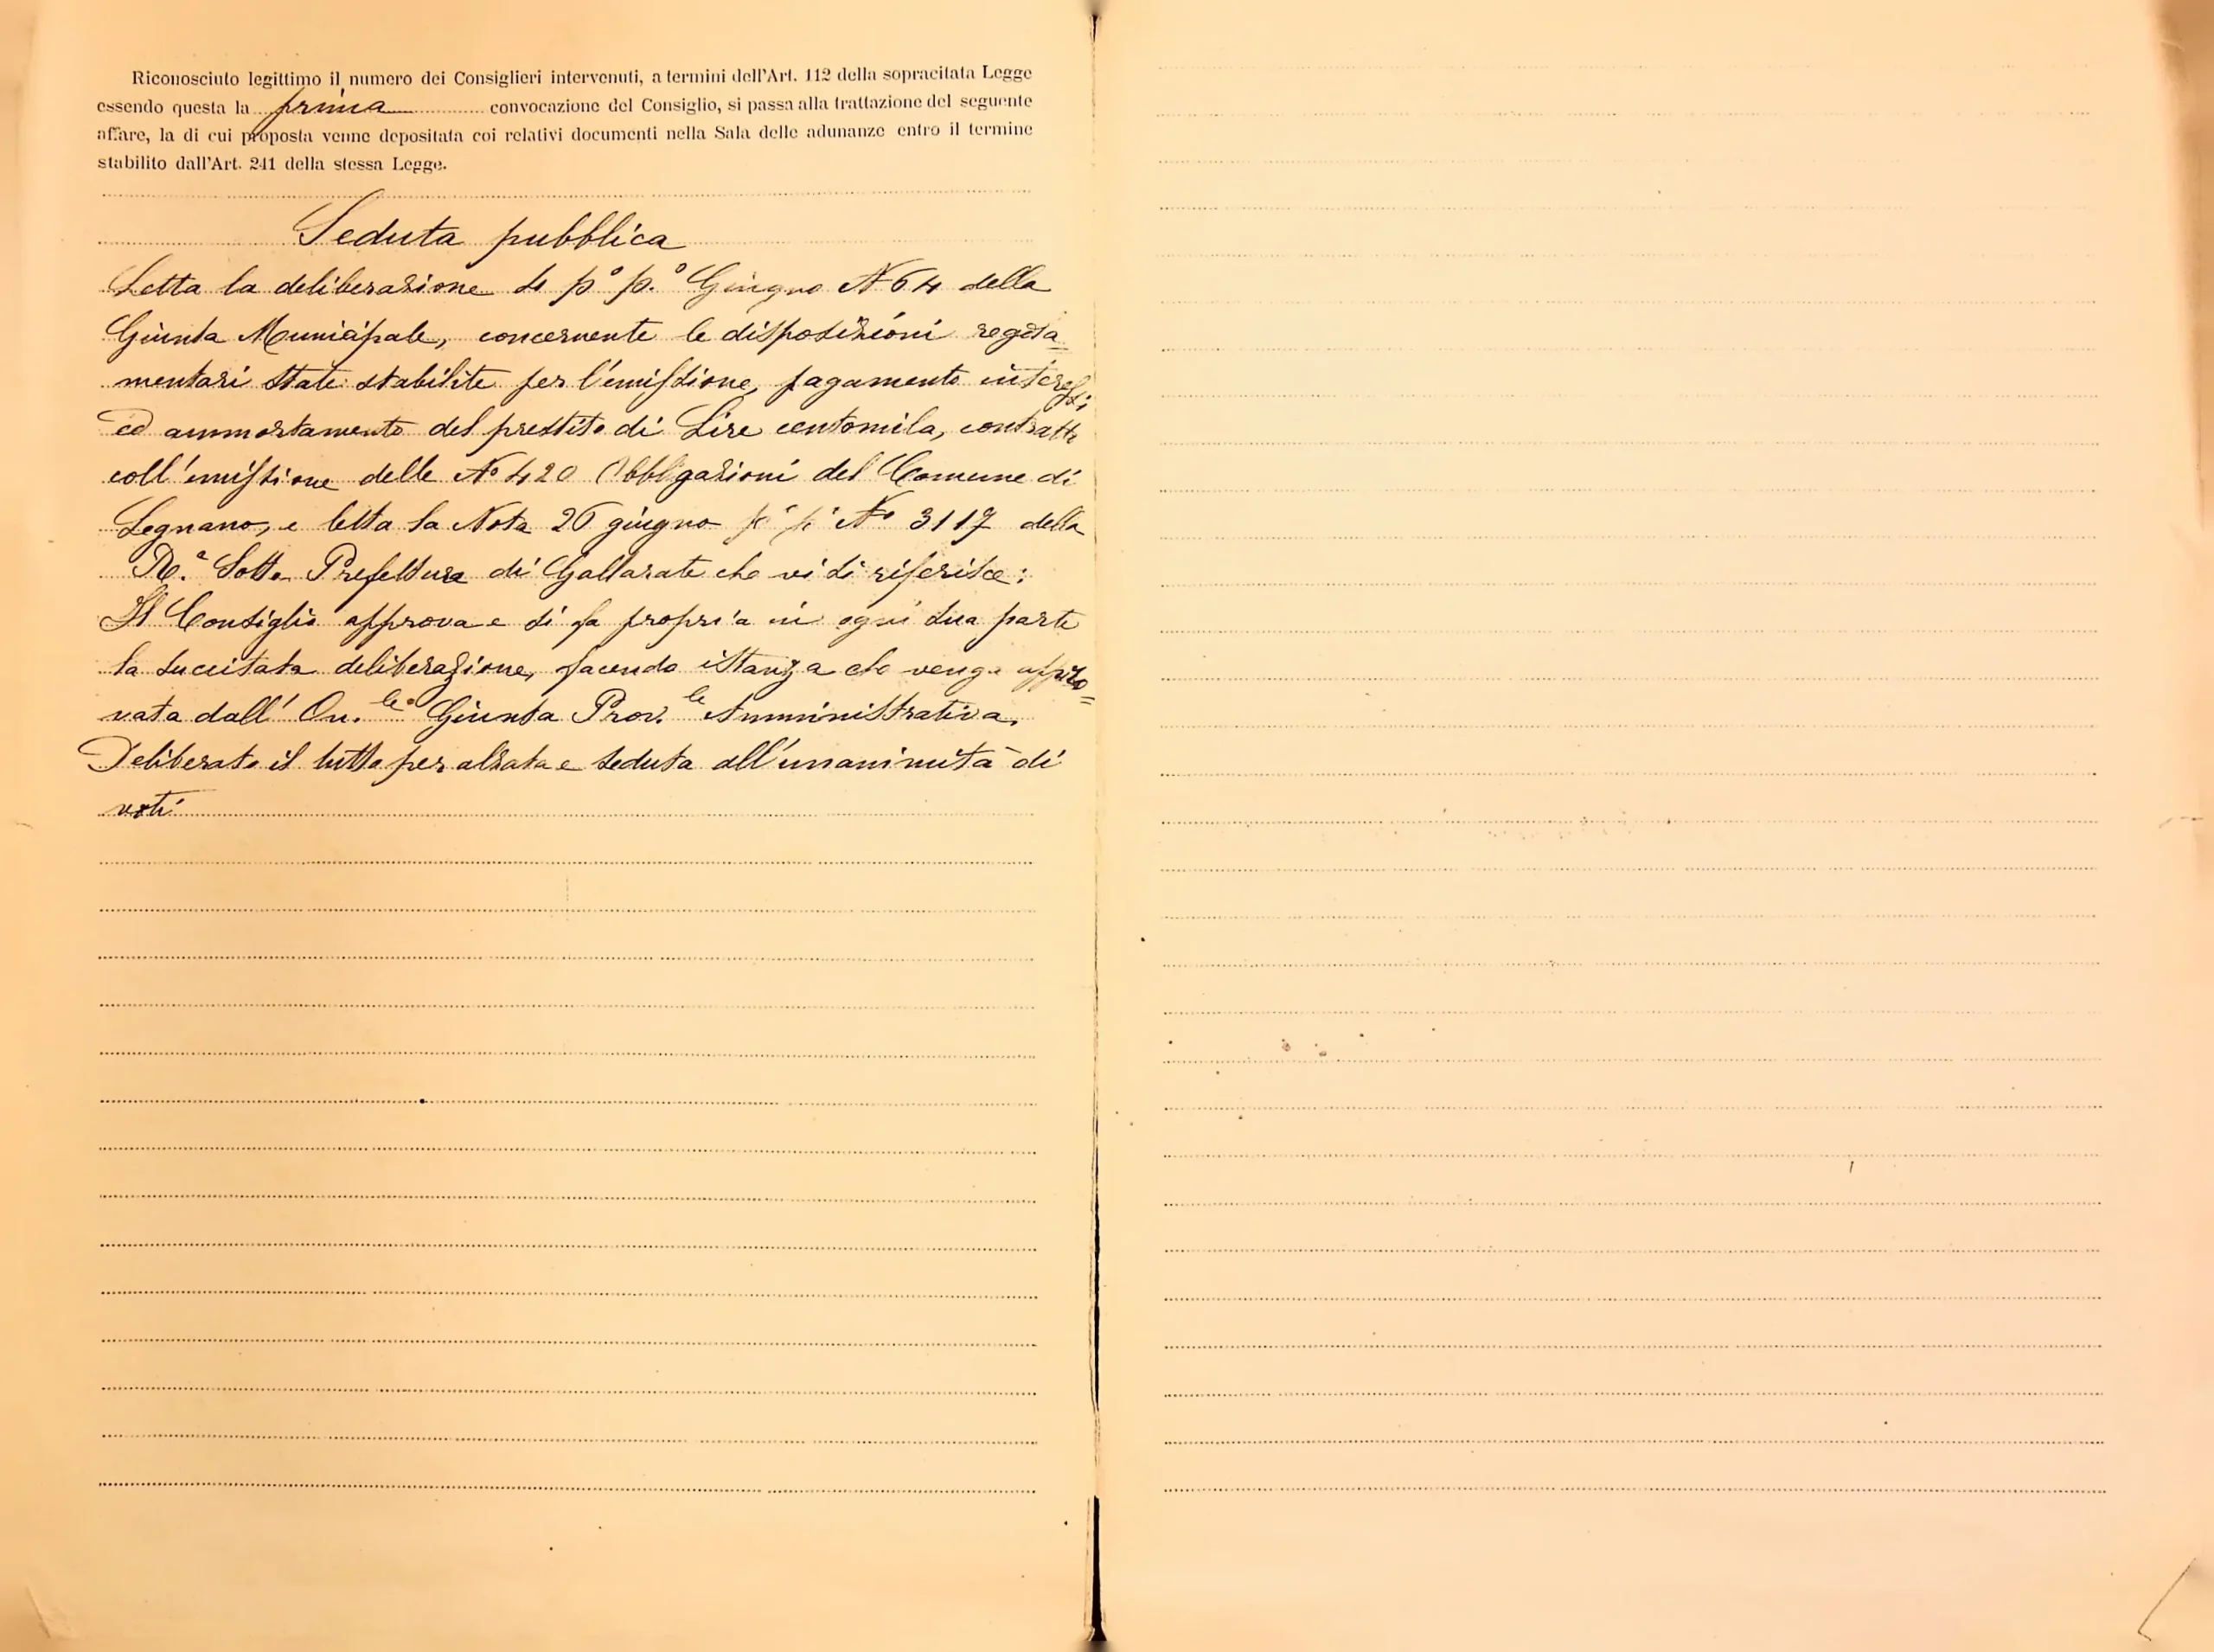 Riconosciuto legittimo il numero dei Consiglieri intervenuti, a termini dell'Art. 112 della sopracitata Legge
essendo questa la prima convocazione del Consiglio, si passa alla trattazione del seguente
affare, la di cui proposta venne depositata coi relativi documenti nella Sala delle adunanze entro il termine
stabilito dall'Art. 241 della stessa Legge.
Seduta pubblica
Letta la deliberazione 4 p.° p.° Giugno N 64 della
Giunta Municipale, concernente le disposizioni regola=
mentari state stabilite per l'emissione, pagamento interessi
ed ammortamento del prestito di Lire centomila, contratto
coll'emissione delle N° 420 Obbligazioni del Comune di
Legnano, e letta la Nota 26 giugno p° p° N° 3117 della
R.ª Sotto Prefettura di Gallarate che vi si riferisce:
Il Consiglio approva e si fa propria in ogni sua parte
la succitata deliberazione, facendo istanza che venga appro=
vata dall'On.le Giunta Prov.le Amministrativa.
Deliberato il tutto per alzata e seduta all'unanimità di
voti